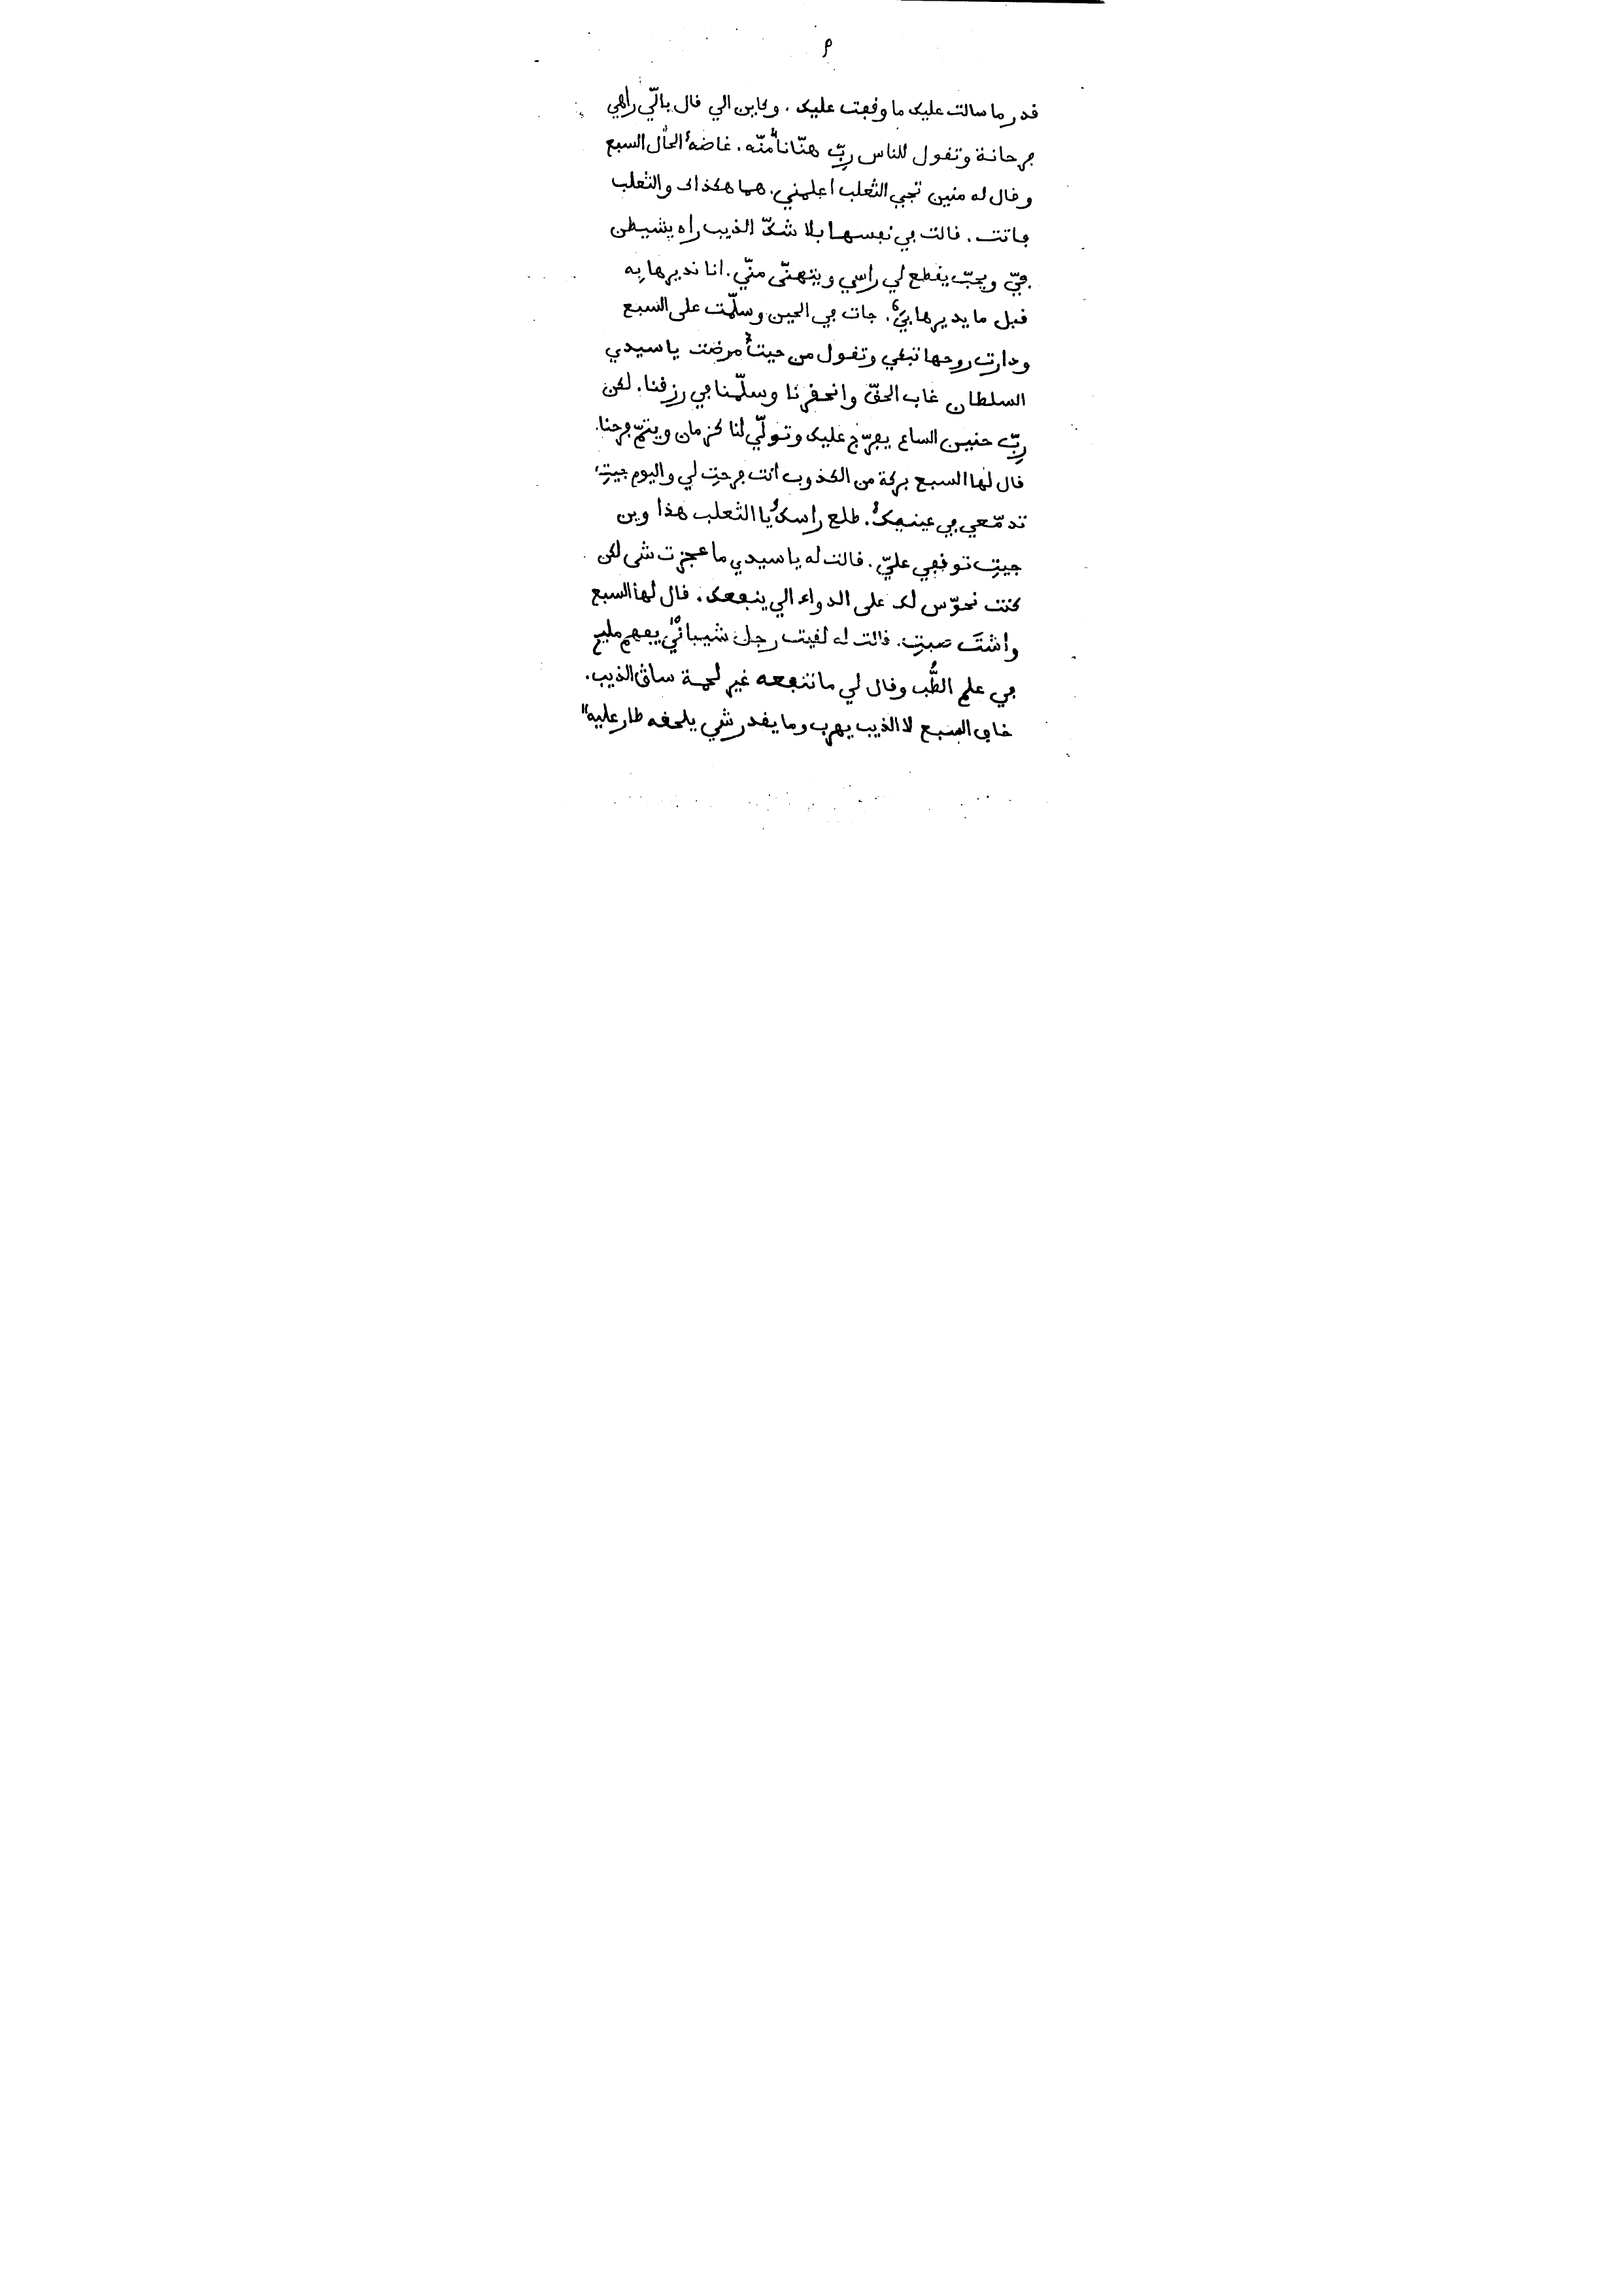 ٩
قدر ما سالت عليك ما وقبت عليك . وكاين الي قال بالّي راهي
فرحانة وتقول للناس ربّي هنّانا منّه . غاضه الحال السبع
وقال له منين تجي الثعلب اعلمني . هما هكذاك والثعلب
جاتت . قالت في نفسها بلا شكّ الذيب راه يشيطن
فيّ ويحبّ يقطع لي راسي ويتهنّى منّي . انا نديرها به
قبل ما يديرها بيّ . جات في الحين وسلّمت على السبع
ودارت روحها تبكي وتقول من حيت مرضت يا سيدي
السلطان غاب الحقّ وانحقرنا وسلّمنا في رزقنا . لكن
ربّي حنين الساع يفرّج عليك وتولّي لنا كزمان ويتمّ فرحنا .
قال لها السبع بركة من الكذوب انت فرحت لي واليوم جيت
تدمّعي في عينيك . طلع راسك يا الثعلب هذا وين
جيت توقفي عليّ . قالت له يا سيدي ما عجزت شي لكن
كنت نحوّس لك على الدواء الي ينفعك . قال لها السبع
واشتَ صبتِ . قالت له لقيت رجل شيباني يفهم مليح
في علم الطُّب وقال لي ما تنفعه غير لحمة ساق الذيب .
خاف السبع لا الذيب يهرب وما يقدر شي يلحقه طار عليه